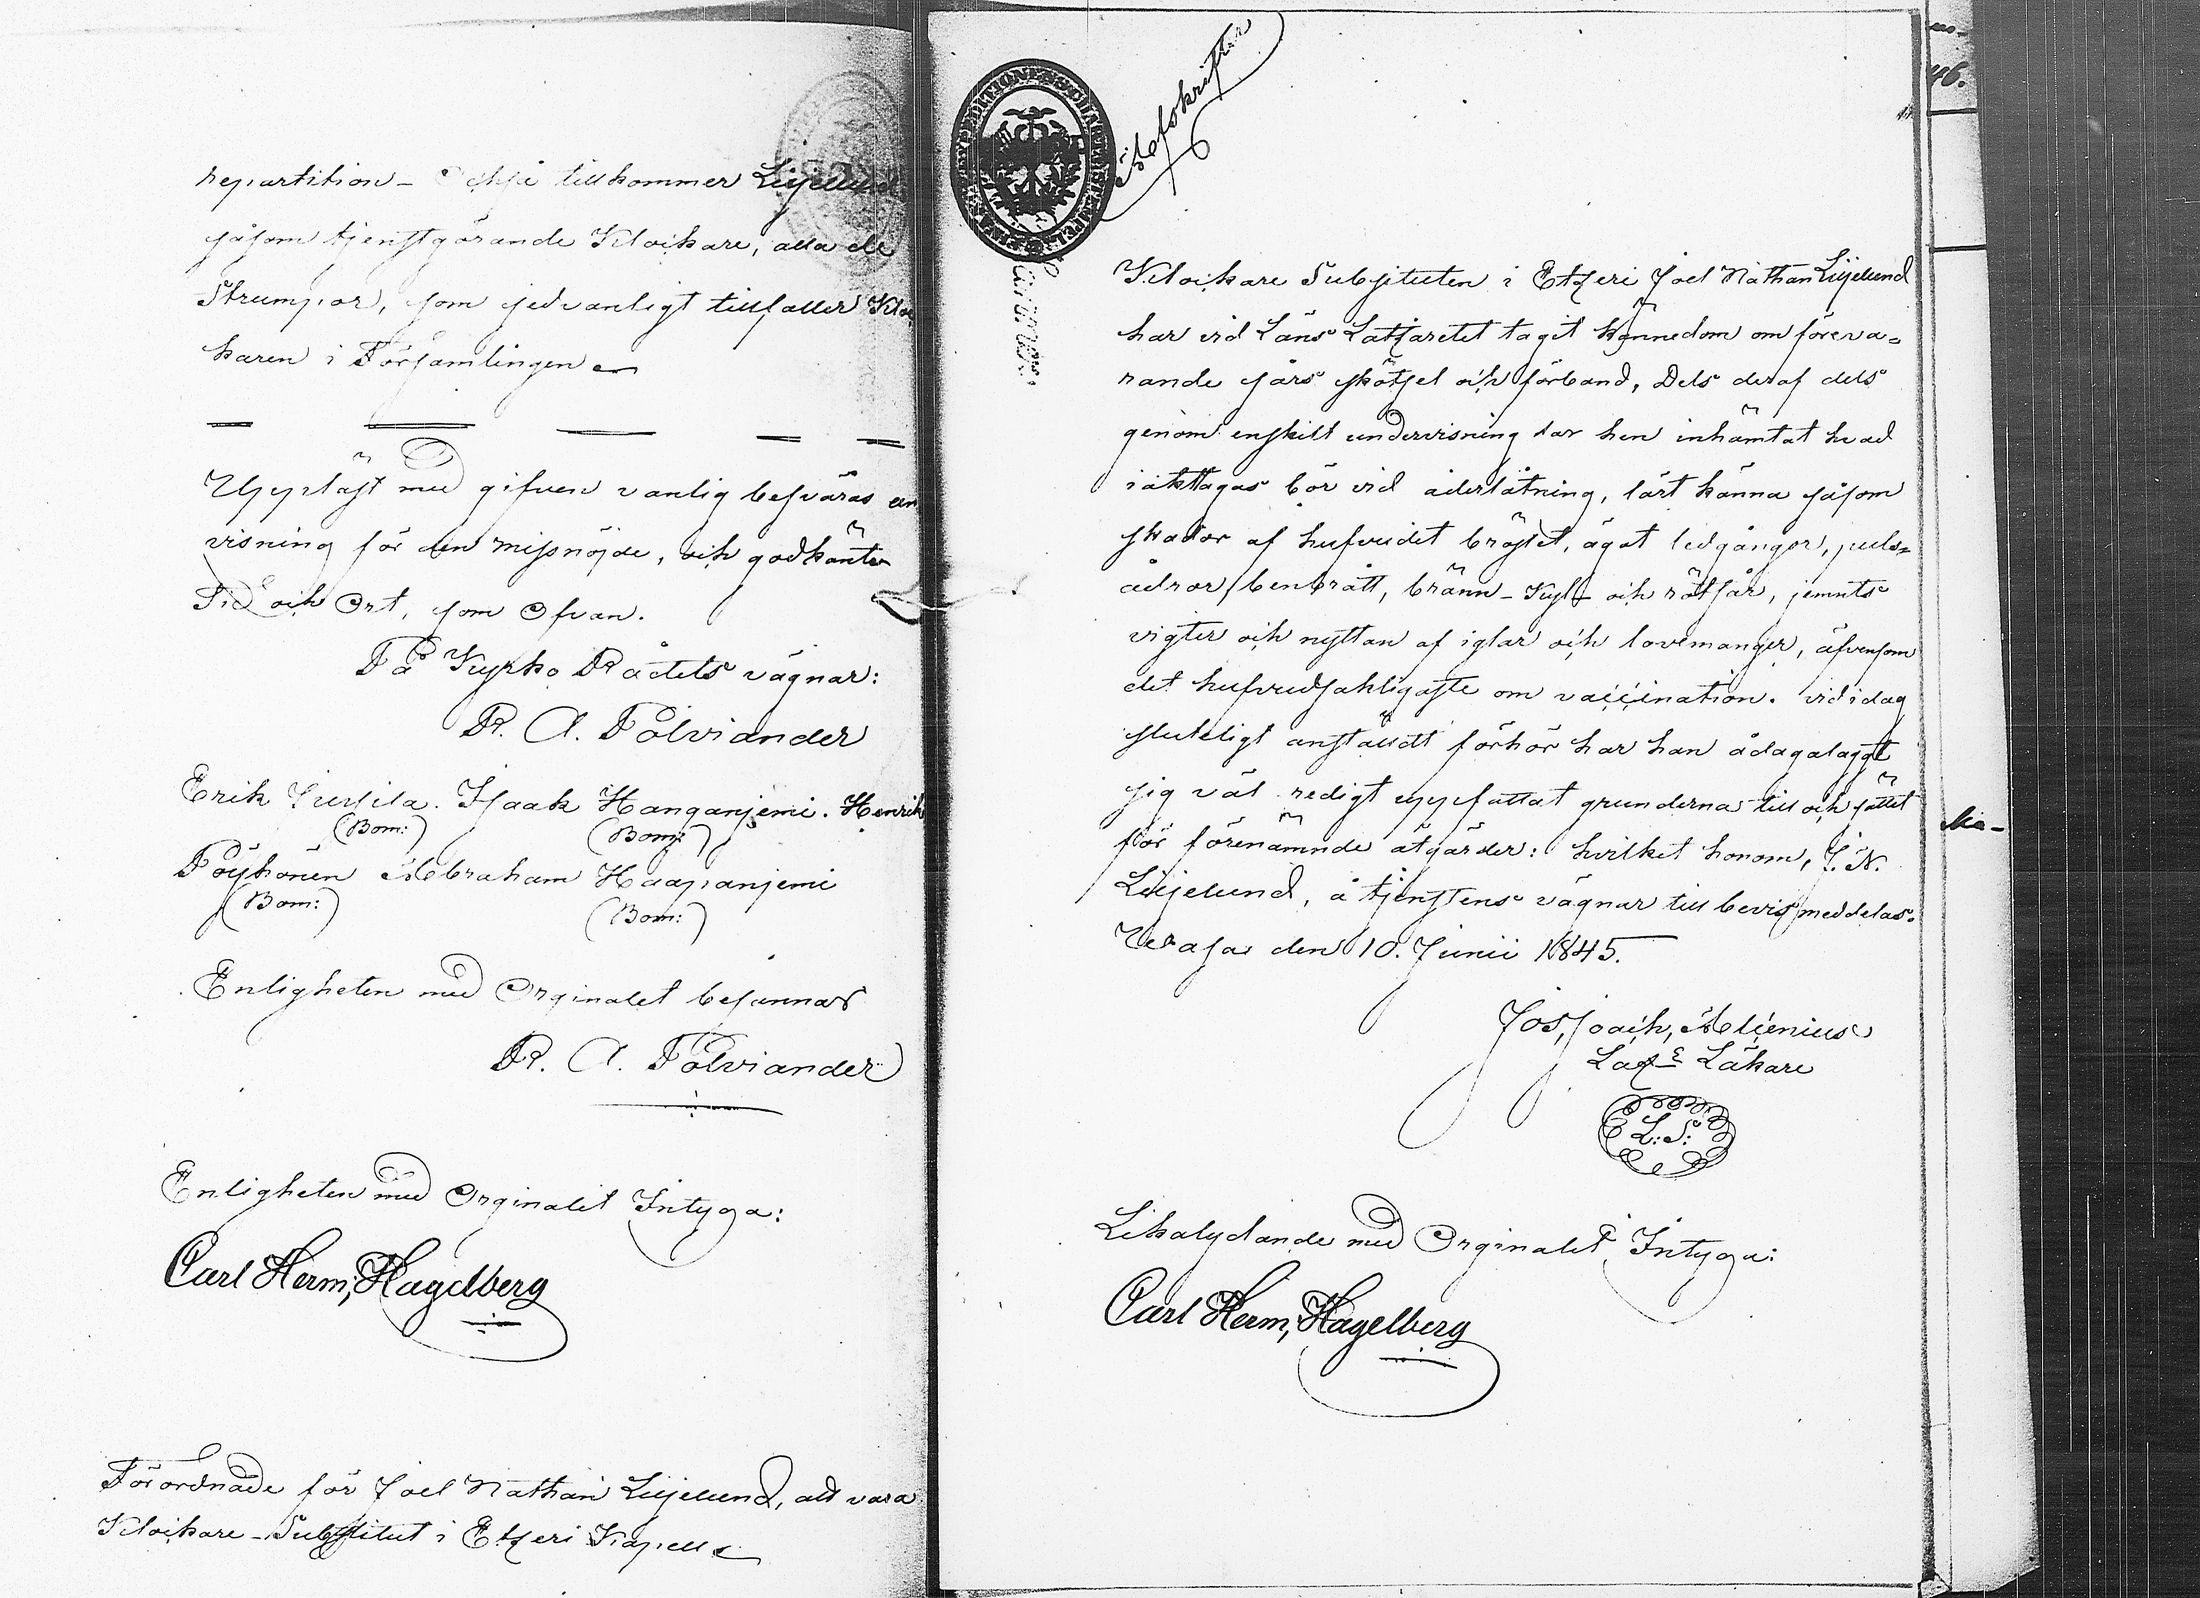 repartition – Också tillkommer Liljelund
såsom tjenstgörande Klockare, alla de
Strumpor, som sedvanligt tillfaller Kloc
karen i Församlingen
Uppläst med gifven vanlig besvärs an
visning för den missnöjde, och godkänts
Tid och Ort, som Ofvan.
På Kyrko Rådets vägnar:
R. A. Polviander
Erik Isaak Hanganjemi. Henrik
(Bom:) (Bom:)
Pöyhönen Abraham Haapanjemi
(Bom:) (Bom:)
Enligheten med Orginalet besannar
R. A. Polviander
Enligheten med Orginalet Intyga:
Carl Herm, Hagelberg
Förordnade för Joel Nathan Liljelund, att vara
Klockare-Substitut i Etzeri Kapell
Afskrifter
Klockare Substituten i Etzeri Joel Nathan Liljelund
har vid Läns Latzaretet tagit kännedom om föreva=
rande sårs skötsel och förband, Dels deraf dels
genom enskilt undervisning har han inhämtat hvad
iakttagas bör vid åderlåtning, lärt känna såsom
skador af hufvudet bröstet, ögat ledgångar, puls=
ådror benbrått, bränn- Kyl- och rötsår, jemnts
vigter och nyttan af iglar och lavemanger, äfvensom
det hufvudsakligaste om vaccination. vid idag
sluteligt anställdt förhör har han ådagalaggt
sig väl redigt uppfattat grunderna till och sättet
för förenämnde åtgärder: hvilket honom, J. N.
Liljelund, å tjenstens vägnar till bevis meddelas.
Wasa den 10. Junii 1845.
Jos, Joach, Alcenius
Laz Läkare
L: S:
Likalydande med Orginalet Intyga:
Carl Herm, Hagelberg